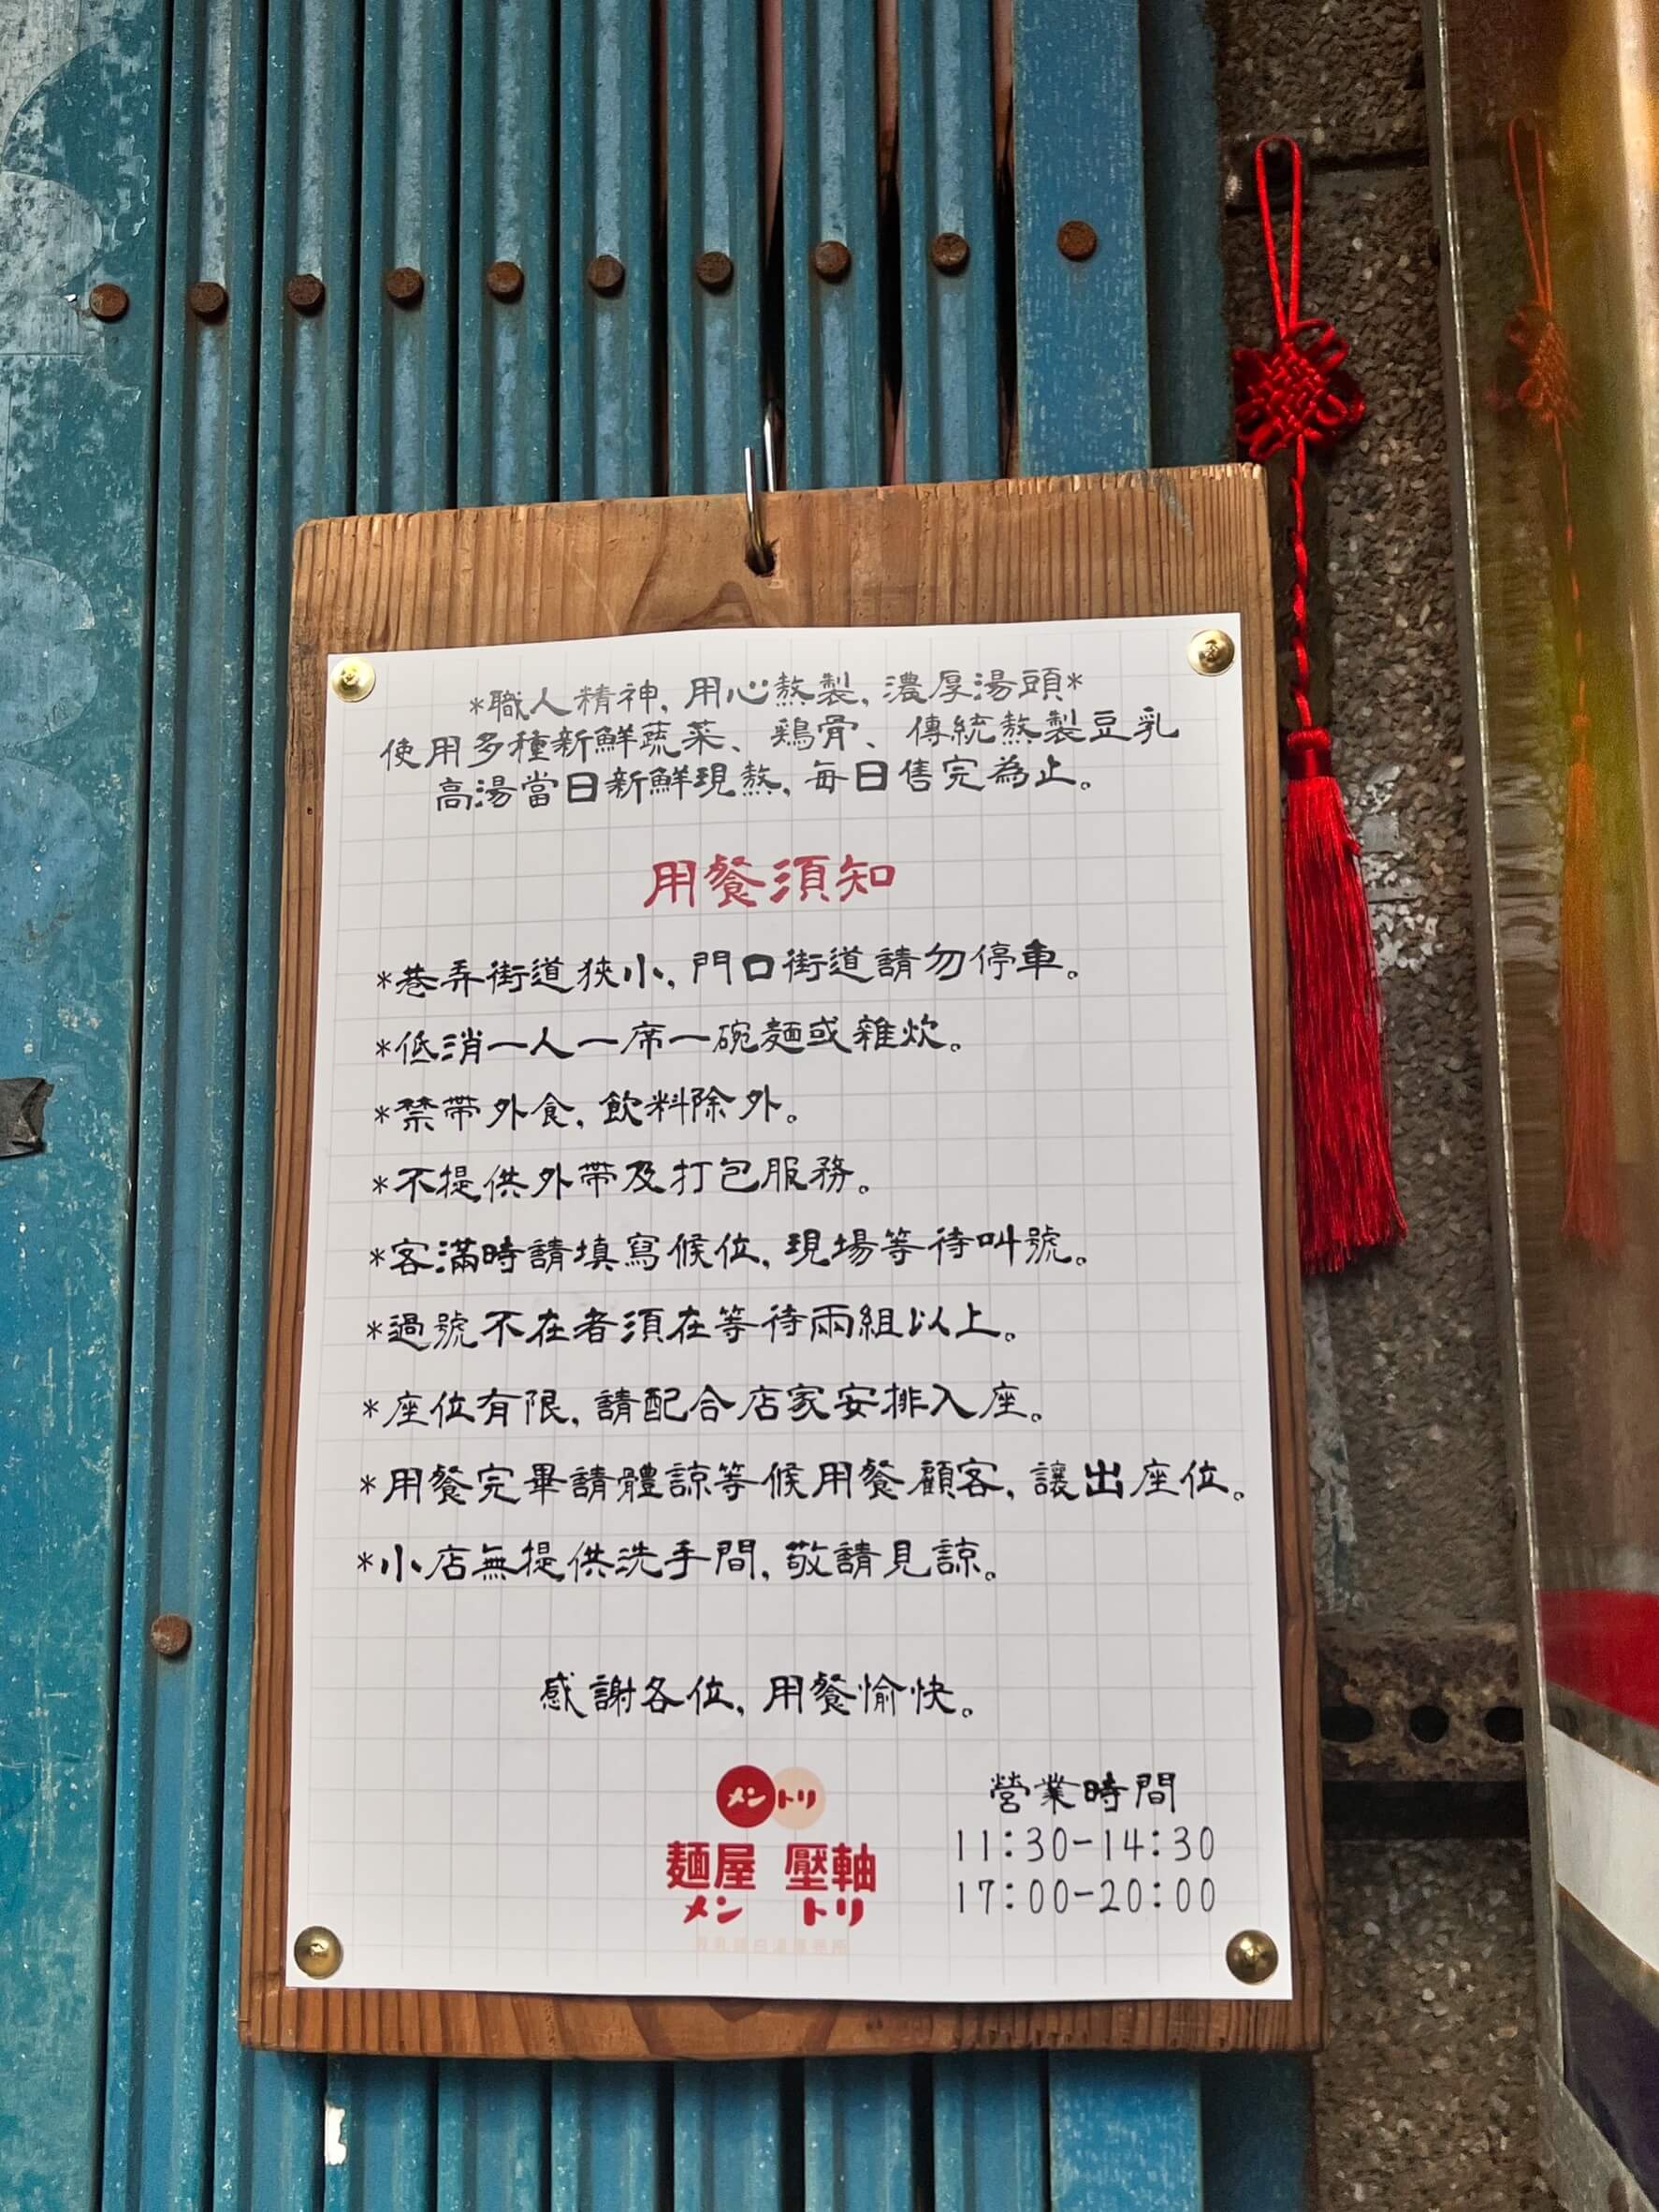 *職人精神,用心熬製,濃厚湯頭*
使用多種新鮮蔬菜、鶏骨、傳統熬製豆乳
高湯當日新鮮現熬,每日售完為止。
用餐須知
*巷弄街道狹小,門口街道請勿停車。
*低消一人一席一碗麵或雜炊。
*禁帶外食,飲料除外。
*不提供外帶及打包服務。
*客滿時請填寫候位,現場等待叫號。
*過號不在者須在等待兩組以上。
*座位有限,請配合店家安排入座。
*用餐完畢請體諒等候用餐顧客,讓出座位。
*小店無提供洗手間,敬請見諒。
感謝各位,用餐愉快。
メントリ
麺屋 壓軸
メン トリ
營業時間
11:30-14:30
17:00-20:00